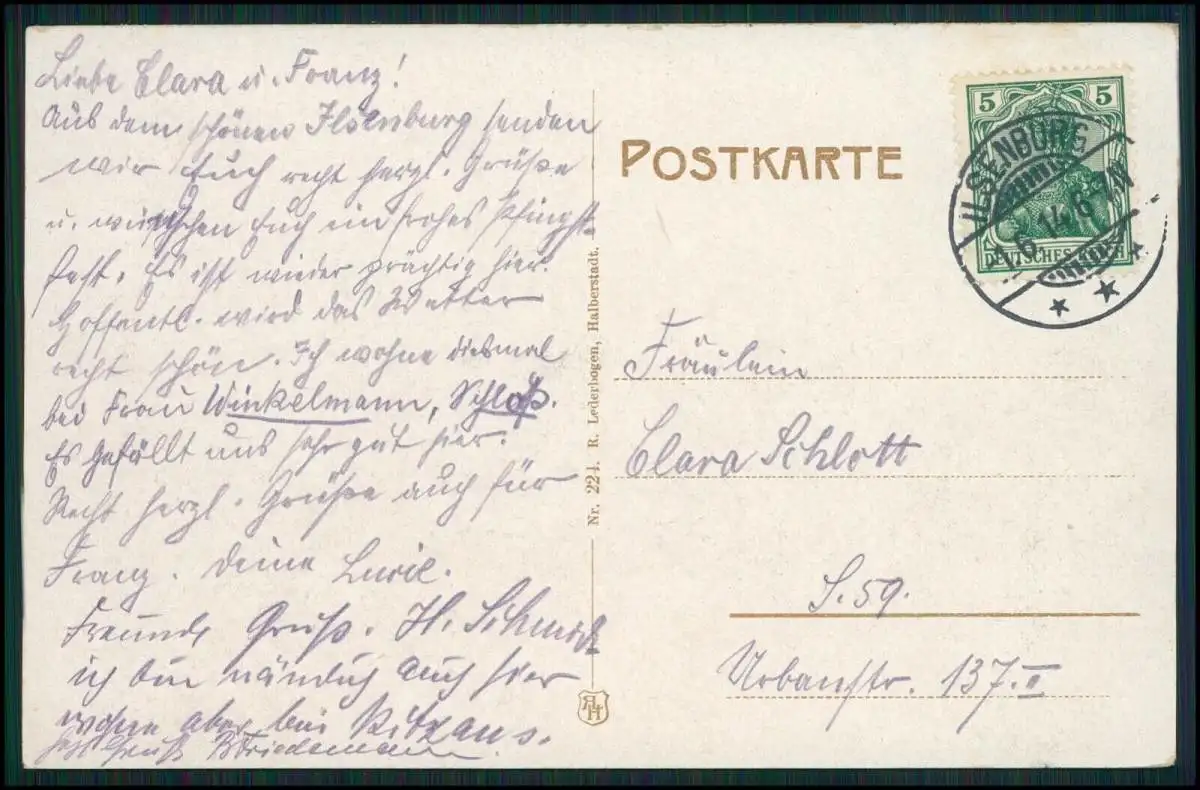 Liebe Clara u. Franz!
Aus dem schönen Ilsenburg senden
wir Euch recht herzl. Grüße
u. wünschen Euch ein frohes Pfingst-
fest. Es ist wieder prächtig hier.
Hoffentl. wird das Wetter
recht schön. Ich wohne diesmal
bei Frau Winkelmann, Schloß.
Es gefällt uns sehr gut hier.
Recht herzl. Grüße auch für
Franz. Deine
Freundl. Gruß. H.
ich bin nämlich auch hier
wohne aber bei
Gruß
POSTKARTE
5 5
ILSENBURG
6.14.6-7N
DEUTSCHES REICH
Nr. 224. R. Lederbogen, Halberstadt.
Fräulein
Clara Schlott
S. 59.
Urbanstr. 137. II